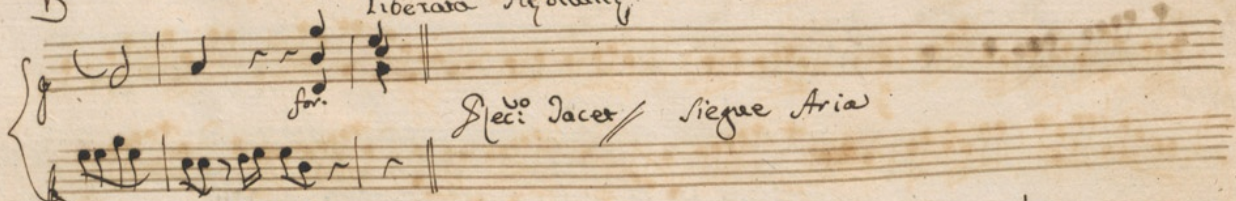 liberata
for.
Rec:vo Jacet // Siegue Aria